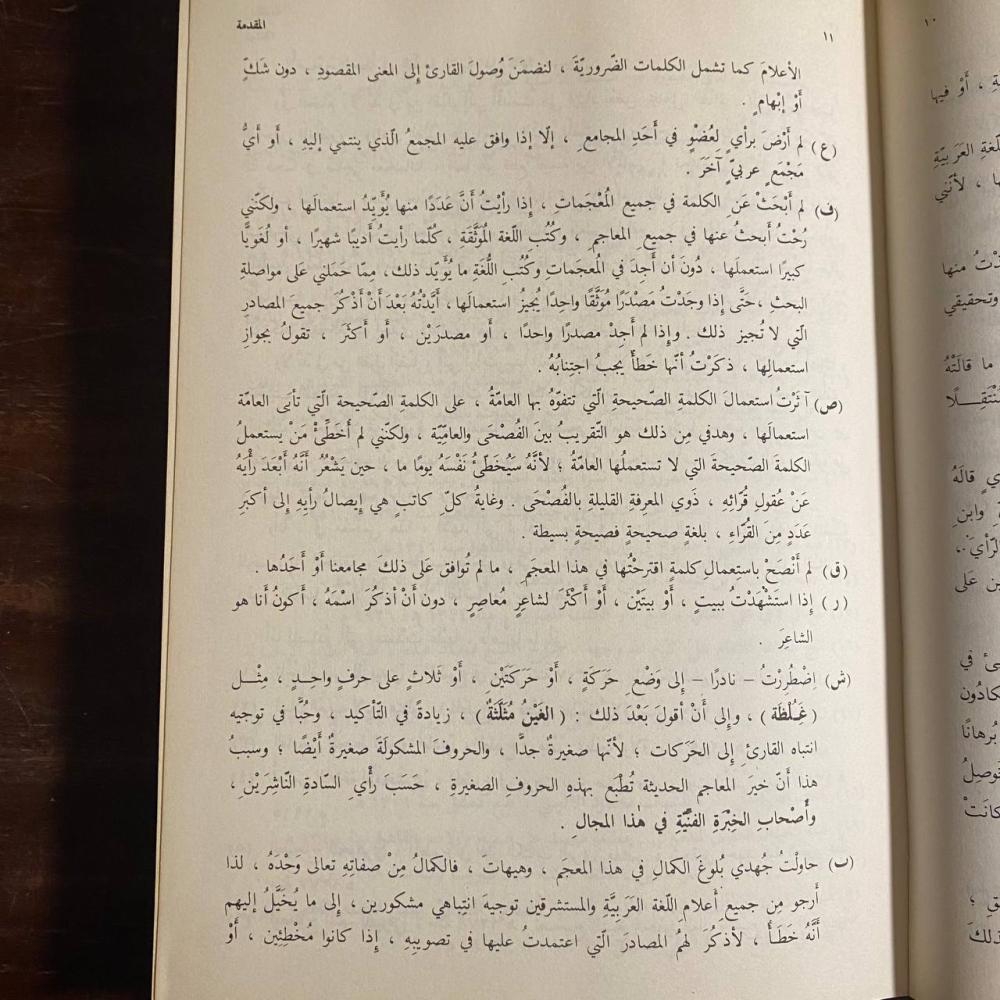 المقدمة
١١
الأعلامَ كما تشمل الكلمات الضّروريّةَ ، لنضمَنَ وُصولَ القارئ إلى المعنى المقصودِ ، دون شَكٍّ
أَوْ إبْهامٍ .
(ع) لم أَرْضَ برأيٍ لِعُضْوٍ في أَحَدِ المجامعِ ، إلّا إذا وافق عليه المجمعُ الّذي ينتمي إليهِ ، أو أَيُّ
مَجْمَعٍ عربيٍّ آخَرَ .
(ف) لم أَبْحَثْ عَنِ الكلمة في جميع المُعْجَماتِ ، إذا رأيْتُ أَنَّ عَدَدًا منها يُؤَيِّدُ استعمالَها ، ولكنّني
رُحْتُ أَبحثُ عنها في جميعِ المعاجمِ ، وكُتُبِ اللّغة المُوَثَّقَةِ ، كُلّما رأيتُ أديبًا شهيرًا ، أو لُغَويًّا
كبيرًا استعملَها ، دُونَ أن أَجِدَ في المُعجمَات وكُتُبِ اللُّغَةِ ما يُؤَيّد ذلك، مِمّا حَمَلني عَلى مواصلةِ
البحثِ ،حَتَّى إذا وجَدْتُ مَصْدَرًا مُوَثَّقًا واحدًا يُجيزُ استعمالَها، أَيَّدْتُهُ بَعْدَ أَنْ أَذْكُرَ جميعَ المصادرِ
الّتي لا تُجيز ذلك . وإذا لم أَجِدْ مصدرًا واحدًا ، أو مصدرَيْن ، أو أكثَرَ ، تقولُ بجوازِ
استعمالِها ، ذكَرْتُ أنّها خَطَأٌ يجبُ اجتِنابُهُ .
(ص) آثَرْتُ استعمالَ الكلمةِ الصّحيحةِ الّتي تتفوّهُ بها العامّةُ ، على الكلمةِ الصّحيحة الّتي تأبَى العامّة
استعمالَها ، وهدفي مِن ذلك هو التّقريبُ بينَ الفُصْحَى والعامِّيّة ، ولكنّني لم أُخَطِّئْ مَنْ يستعملُ
الكلمةَ الصّحيحةَ التي لا تستعملُها العامّةُ ؛ لأنَّهُ سَيُخَطِّئُ نَفْسَهُ يومًا ما ، حين يَشْعُرُ أَنَّهُ أَبْعَدَ رأْيَهُ
عَنْ عُقولِ قُرّائِهِ ، ذَوي المعرفةِ القليلةِ بالفُصْحَى . وغايةُ كلِّ كاتبٍ هي إيصالُ رأيِهِ إلى أكبَرِ
عَدَدٍ مِنَ القُرّاءِ ، بلغةٍ صحيحةٍ فصيحةٍ بسيطة .
(ق) لم أَنْصَحْ باستعمالِ كلمةٍ اقترحْتُها في هذا المعجَمِ ، ما لم تُوافق عَلى ذلكَ مجامعنا أَوْ أَحَدُها .
(ر) إذا استَشْهَدْتُ ببيتٍ ، أَوْ بيتَيْنِ ، أَوْ أَكْثَرَ لشاعرٍ مُعاصرٍ ، دون أَنْ أذكُرَ اسْمَهُ ، أَكونُ أَنا هو
الشاعرَ .
(ش) اِضْطُرِرْتُ – نادرًا – إلى وَضْعِ حَرَكَةٍ ، أَوْ حَرَكَتَيْنِ ، أَوْ ثَلاثٍ على حرفٍ واحدٍ ، مِثْـل
(غِلْظَة) ، وإلى أَنْ أقولَ بَعْدَ ذلك : (الغَيْنُ مُثَلَّثَةٌ) ، زيادةً في التّأكيد ، وحُبًّا في توجيه
انتباه القارئِ إلى الحَرَكات ؛ لأنّها صغيرةٌ جدًّا ، والحروفَ المشكولَةَ صغيرةٌ أَيْضًا ؛ وسببُ
هذا أَنّ خيرَ المعاجم الحديثة تُطْبَع بهذهِ الحروفِ الصّغيرةِ ، حَسَبَ رأْيِ السّادةِ النّاشِرَيْنِ ،
وأَصْحابِ الخِبْرَةِ الفنّيّةِ في هٰذا المجال .
(ت) حاولْتُ جُهدي بُلوغَ الكمالِ في هذا المعجَم ، وهيهاتَ ، فالكمالُ مِنْ صفاتِهِ تعالى وَحْدَهُ ، لذا
أرجو مِن جميعِ أعلامِ اللّغة العَرَبِيَّةِ والمستشرقين توجيهَ انتباهي مشكورين ، إلى ما يُخَيَّلُ إليهم
أَنَّهُ خَطَأٌ ، لأذكُرَ لهُمُ المصادرَ الّتي اعتمدتُ عليها في تصويبِهِ ، إذا كانوا مُخْطِئين ، أَوْ